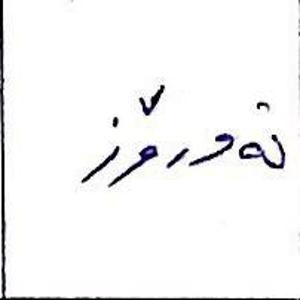 نەورۆز